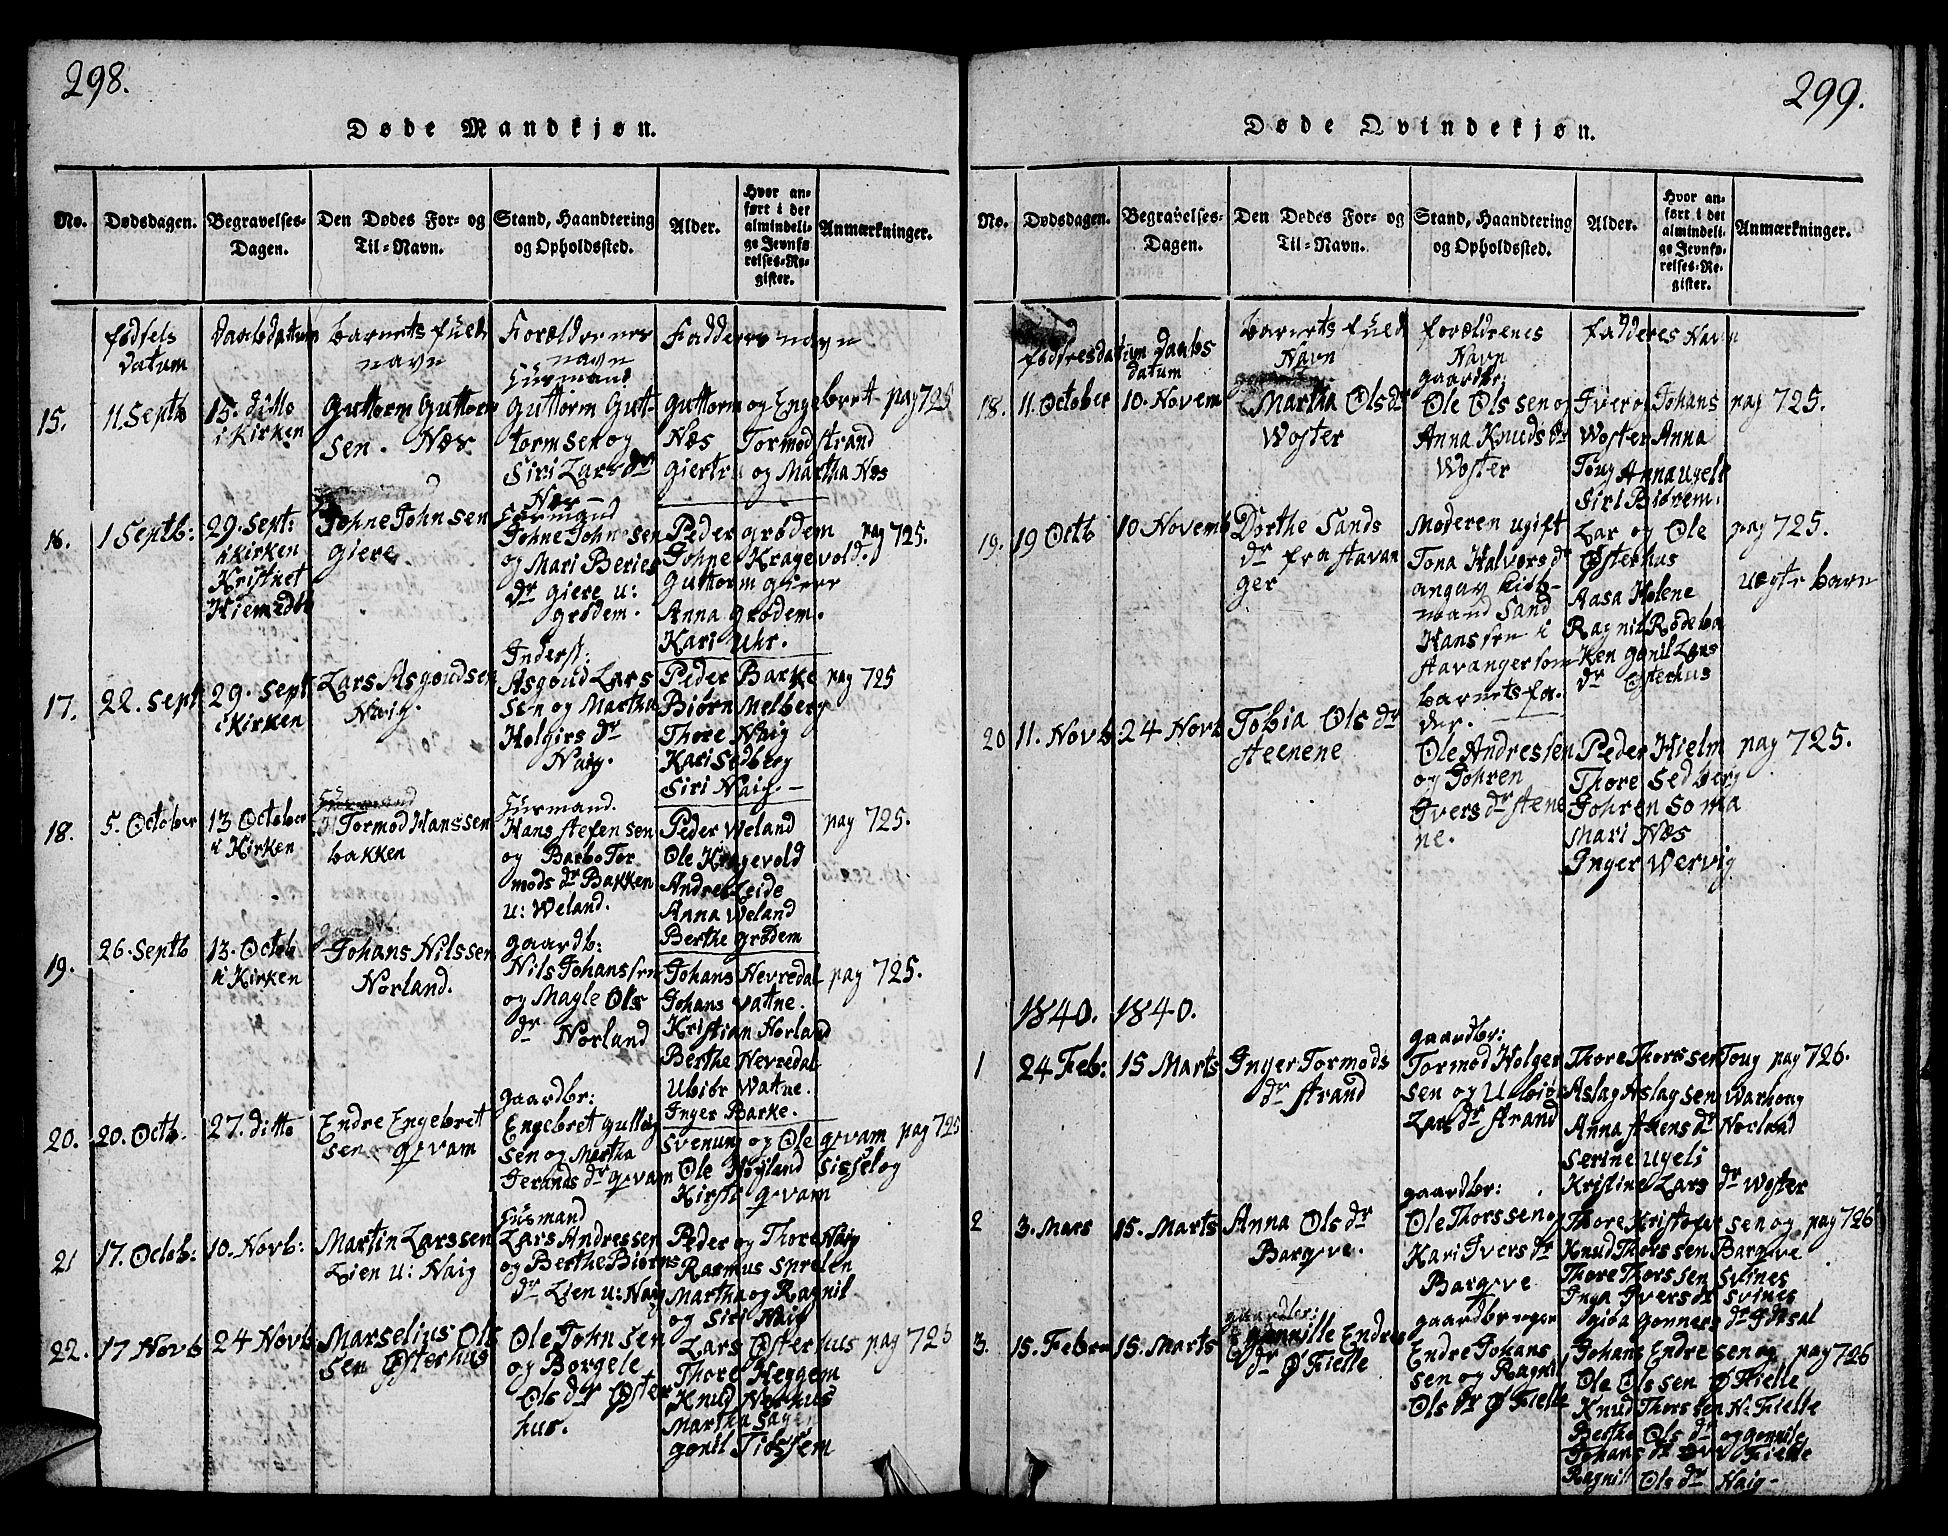 298.
Døde Mandkjøn.
No.
Dødsdagen.
Begravelses-
Dagen.
Den Dødes For- og
Til-Navn.
Stand, Haandtering
og Opholdssted.
Alder.
Hvor an-
ført i det
almindeli-
ge Jevnfø
relses-Re-
gister.
Anmærkninger.
fødsels
datum
daabsdatum
barnets fuld
navn
Forældrenes
navn
Faddernes navn
15.
11 Septb
15. ditto
i Kirken
Guttorm Guttorm
sen. Næs
Huusmand
Guttorm Gutt-
ormsen og
Siri Lars dr
Næs
Guttorm og Engebret
Næs Tormod Strand
giertru og Martha Næs
pag 725
16.
1 Septb:
29. Sept:
i Kirken
Kristnet
Hiemedbt
Johne Johnsen
giere
Huusmand
Johne Johnsen
og Mari Beries
dr giere u:
grødem.
Peder grødem
Johne Kragevold
Guttorm giere
Anna grødem.
Kari Uhr.
pag 725.
17.
22. Sept
29. Sept
i Kirken
Lars Asgoudsen
Naig.
Inderst:
Asgoud Lars
sen og Martha
Holgirs dr
Naig.
Peder Barke
Biørn Melberg
Thore Naig
Kari Sedberg
Siri Naig.
pag 725
18.
5. October
13 October
i Kirken
Tormod Hanssen
bakken
Huusmand.
Hans Stefensen
og Barbo Tor
mods dr Bakken
u: Weland.
Peder Weland
Ole Kragevold
Andre Leide
Anna Weland
Berthe grødem
pag 725.
19.
26. Septb
13. Octob
i Kirken
Johans Nilssen
Norland.
gaardb:
Nils Johanssen
og Magle Ols
dr Norland
Johans Nevredal
Johans Vatne.
Kristian Norland
Berthe Nevredal
Ubiør Watne.
Inger Barke.
pag 725.
20.
20. Octb.
27. ditto
Endre Engebret
sen qvam
gaardbr:
Engebret gulleig
sen og Martha
Jerands dr qvam
Svenung og Ole qvam
Ole Høyland Sissel og
Kirsti qvam
pag 725
21
17. Octob:
10. Novb:
Martin Larssen
Lien u: Naig
Husmand
Lars Andressen
og Berthe Biørns
dr Lien u: Naig
Peder og Thore Naig
Rasmus Sprelen
Martha og Ragnil
og Siri Naig
22.
17 Novb
24 Novb
Marselius Ols
sen Østerhus
Ole Johnsen
og Borgele
Ols dr Øster
hus.
Lars Østerhus
Thore Heggem
Knud Nørhus
Martha Sage
gonil Tiossem
pag 725
299.
Døde Qvindekjøn.
No.
Dødsdagen.
Begravelses-
Dagen.
Den Dødes For- og
Til-Navn.
Stand, Haandtering
og Opholdssted.
Alder.
Hvor an-
ført i det
almindeli-
ge Jevnfø-
relses-Re-
gister.
Anmærkninger.
fødsresdatum
daabs
datum
barnets fuld
Navn
forældrenes
Navn
fadderes Navn
18.
11. October
10. Novem
Martha Ols dr
Woster
gaardbr.
Ole Olssen og
Anna Knuds dr
Woster
Iver og Johans
Woster Anna
Toug Anna Ugels
Siri Biørem.
pag 725.
19.
19 Octb
10 Novemb
Dorthe Sands
dr fra Stavan
ger
Moderen ugift
Tona Halvors dr
angav Kiøb-
mand Sand
Hanssen i
Stavanger som
barnets fa-
der.
Lar og Ole
Østerhus
Aasa Helene
Ragnil Rødeba
Ken gonil Lars
dr Østerhus
pag 725.
uegte barn
20
11. Novb
24 Novb
Tobia Ols dr
Steenene
Ole Andressen
og Johren
Ivers dr Stene
ne.
Peder Hielm
Thore Sedberg
Johren Soma
Mari Næs
Inger Wervig
pag 725.
1840. 1840.
1
24 Feb:
15 Marts
Inger Tormods
dr Strand
gaardbr:
Tormod Holger
sen og Ubiør
Lars dr Strand
Thore Thorssen Toug
Aslag Aslagsen Warhoug
Anna Stens dr Norland
Serine Ugels
Kristine Lars dr Woster
pag 726.
2
3. Mars
15. Marts
Anna Ols dr
Bargeve.
gaardbr:
Ole Thorssen og
Kari Ivers dr
Bargeve
Thore Kristofersen og
Knud Thorssen Bargeve
Thore Thorssen Svines
Inga Ivers dr Svines
gioa gonners dr Idsal
pag 726
3.
15. Febru
15. Marts
gonnille Endres
dr Ø Fielle
gaardbruger
Endre Johans
sen og Ragnil
Ols dr Ø Fielle
Johans Endresen og
Ole Olssen Ø Fielle
Knud Thorssen N: Fielle
Berthe Ols dr og gonnile
Johans dr Fielle
Ragnil Ols dr Naig
pag 726